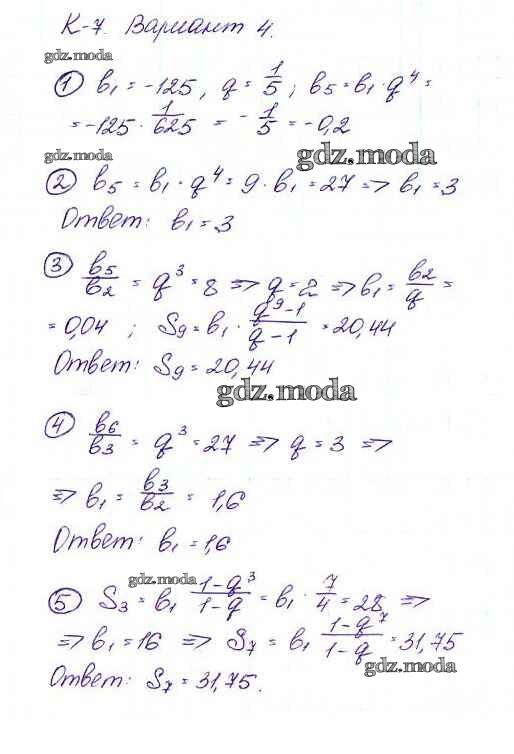 К-7. Вариант 4.
gdz.moda
① b₁ = -125, q = 1/5; b₅ = b₁ · q⁴ =
= -125 · 1/625 = - 1/5 = -0,2
gdz.moda
gdz.moda
② b₅ = b₁ · q⁴ = 9 · b₁ = 27 => b₁ = 3
Ответ: b₁ = 3
③ b₅/b₂ = q³ = 8 => q = 2 => b₁ = b₂/q =
= 0,04 ; S₉ = b₁ · (q⁹-1)/(q-1) = 20,44
Ответ: S₉ = 20,44
gdz.moda
④ b₆/b₃ = q³ = 27 => q = 3 =>
=> b₁ = b₃/b₂ = 1,6
Ответ: b₁ = 1,6
gdz.moda
⑤ S₃ = b₁ (1-q³)/(1-q) = b₁ · 7/4 = 28 =>
=> b₁ = 16 => S₇ = b₁ (1-q⁷)/(1-q) = 31,75
gdz.moda
Ответ: S₇ = 31,75.